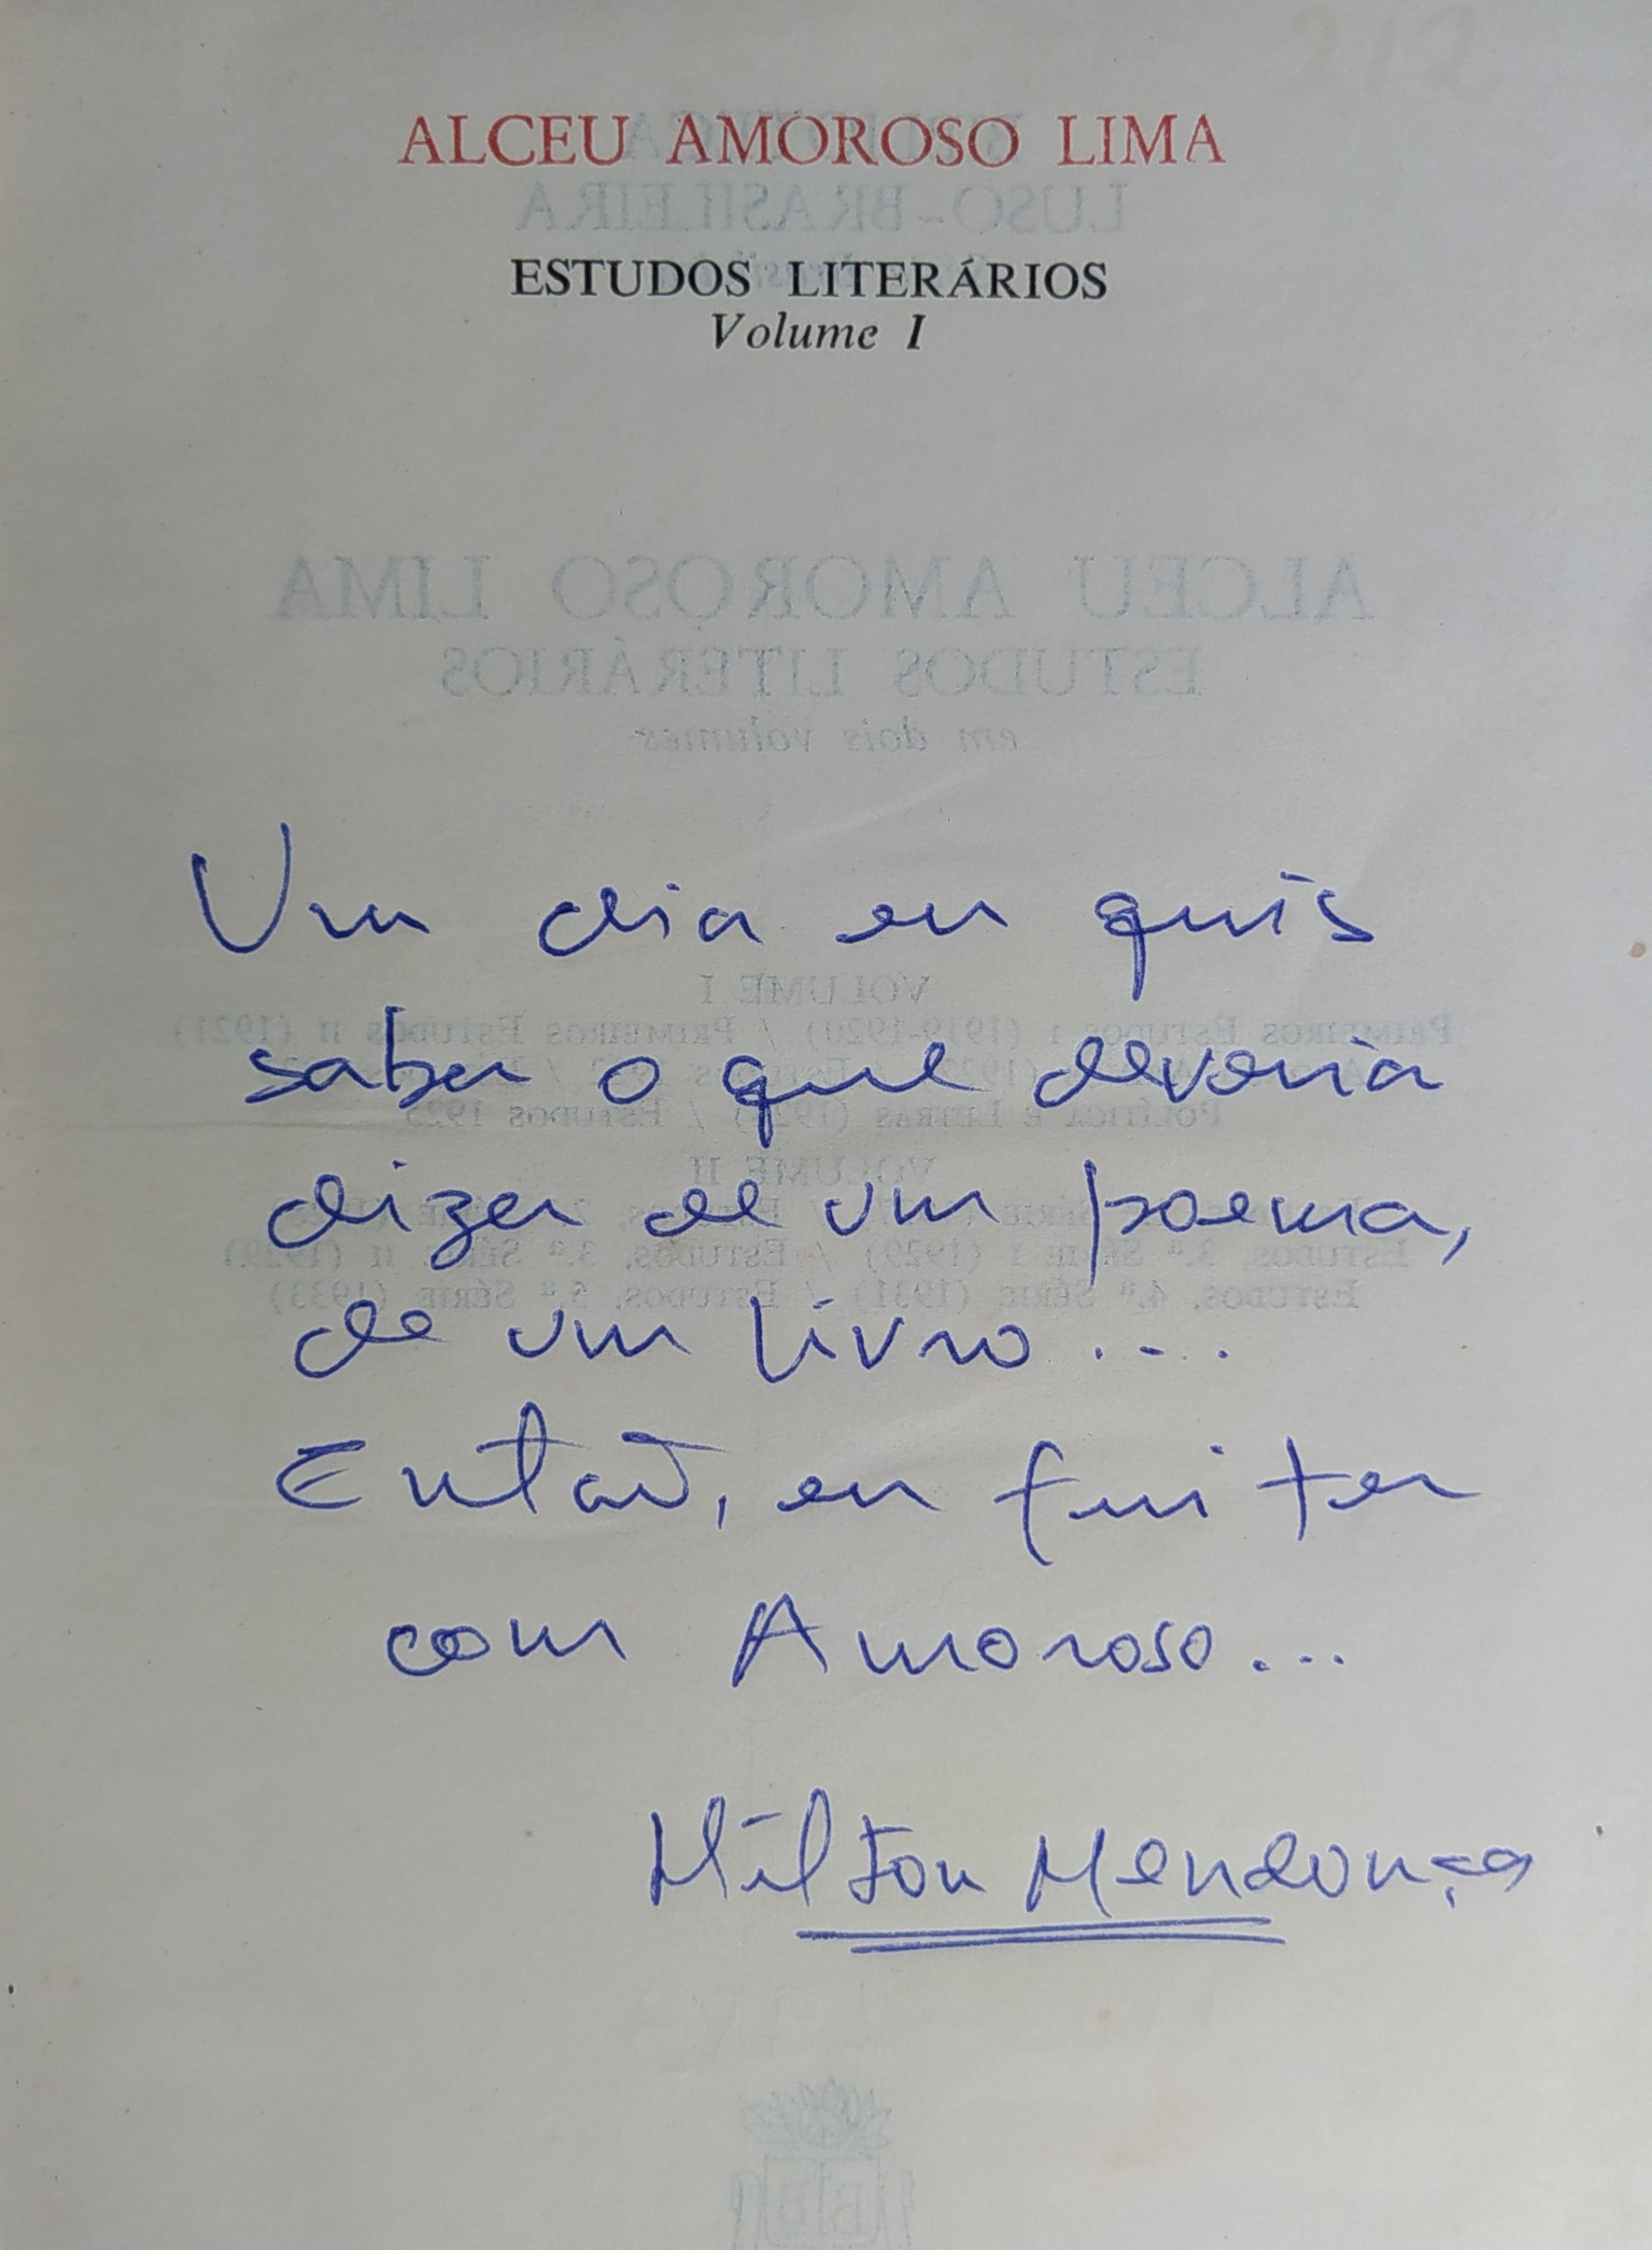 ALCEU AMOROSO LIMA
ESTUDOS LITERÁRIOS
Volume I
Um dia eu quis
saber o que deveria
dizer de um poema,
de um livro...
Então, eu fui ter
com Amoroso...
Milton Mendonça